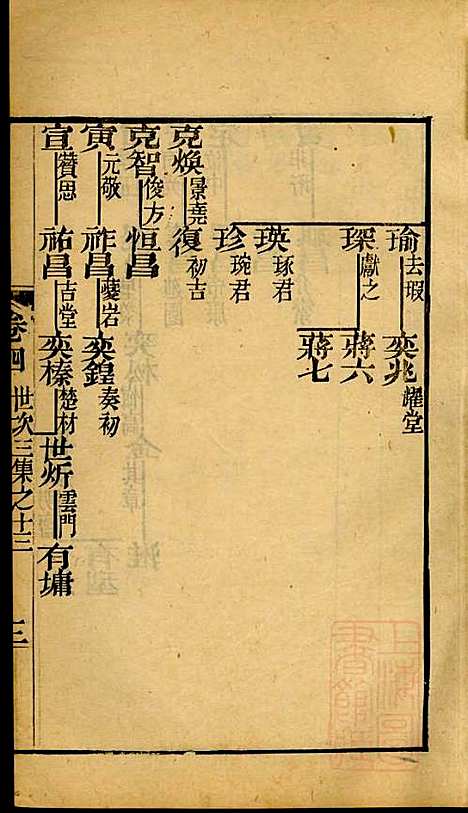 瑜 去瑕 奕兆 耀堂
琛 獻之 蔣六
蔣七
瑛 琢君
珍 琬君
克煥 景堯 復 初吉
克智 俊方 恒昌
寅 元敬 祚昌 夔岩 奕鍠 奏初
宣 贊思 祐昌 古堂 奕榛 楚材 世炘 雲門 有墉
卷四 世次三集之十三
上海圖書館藏